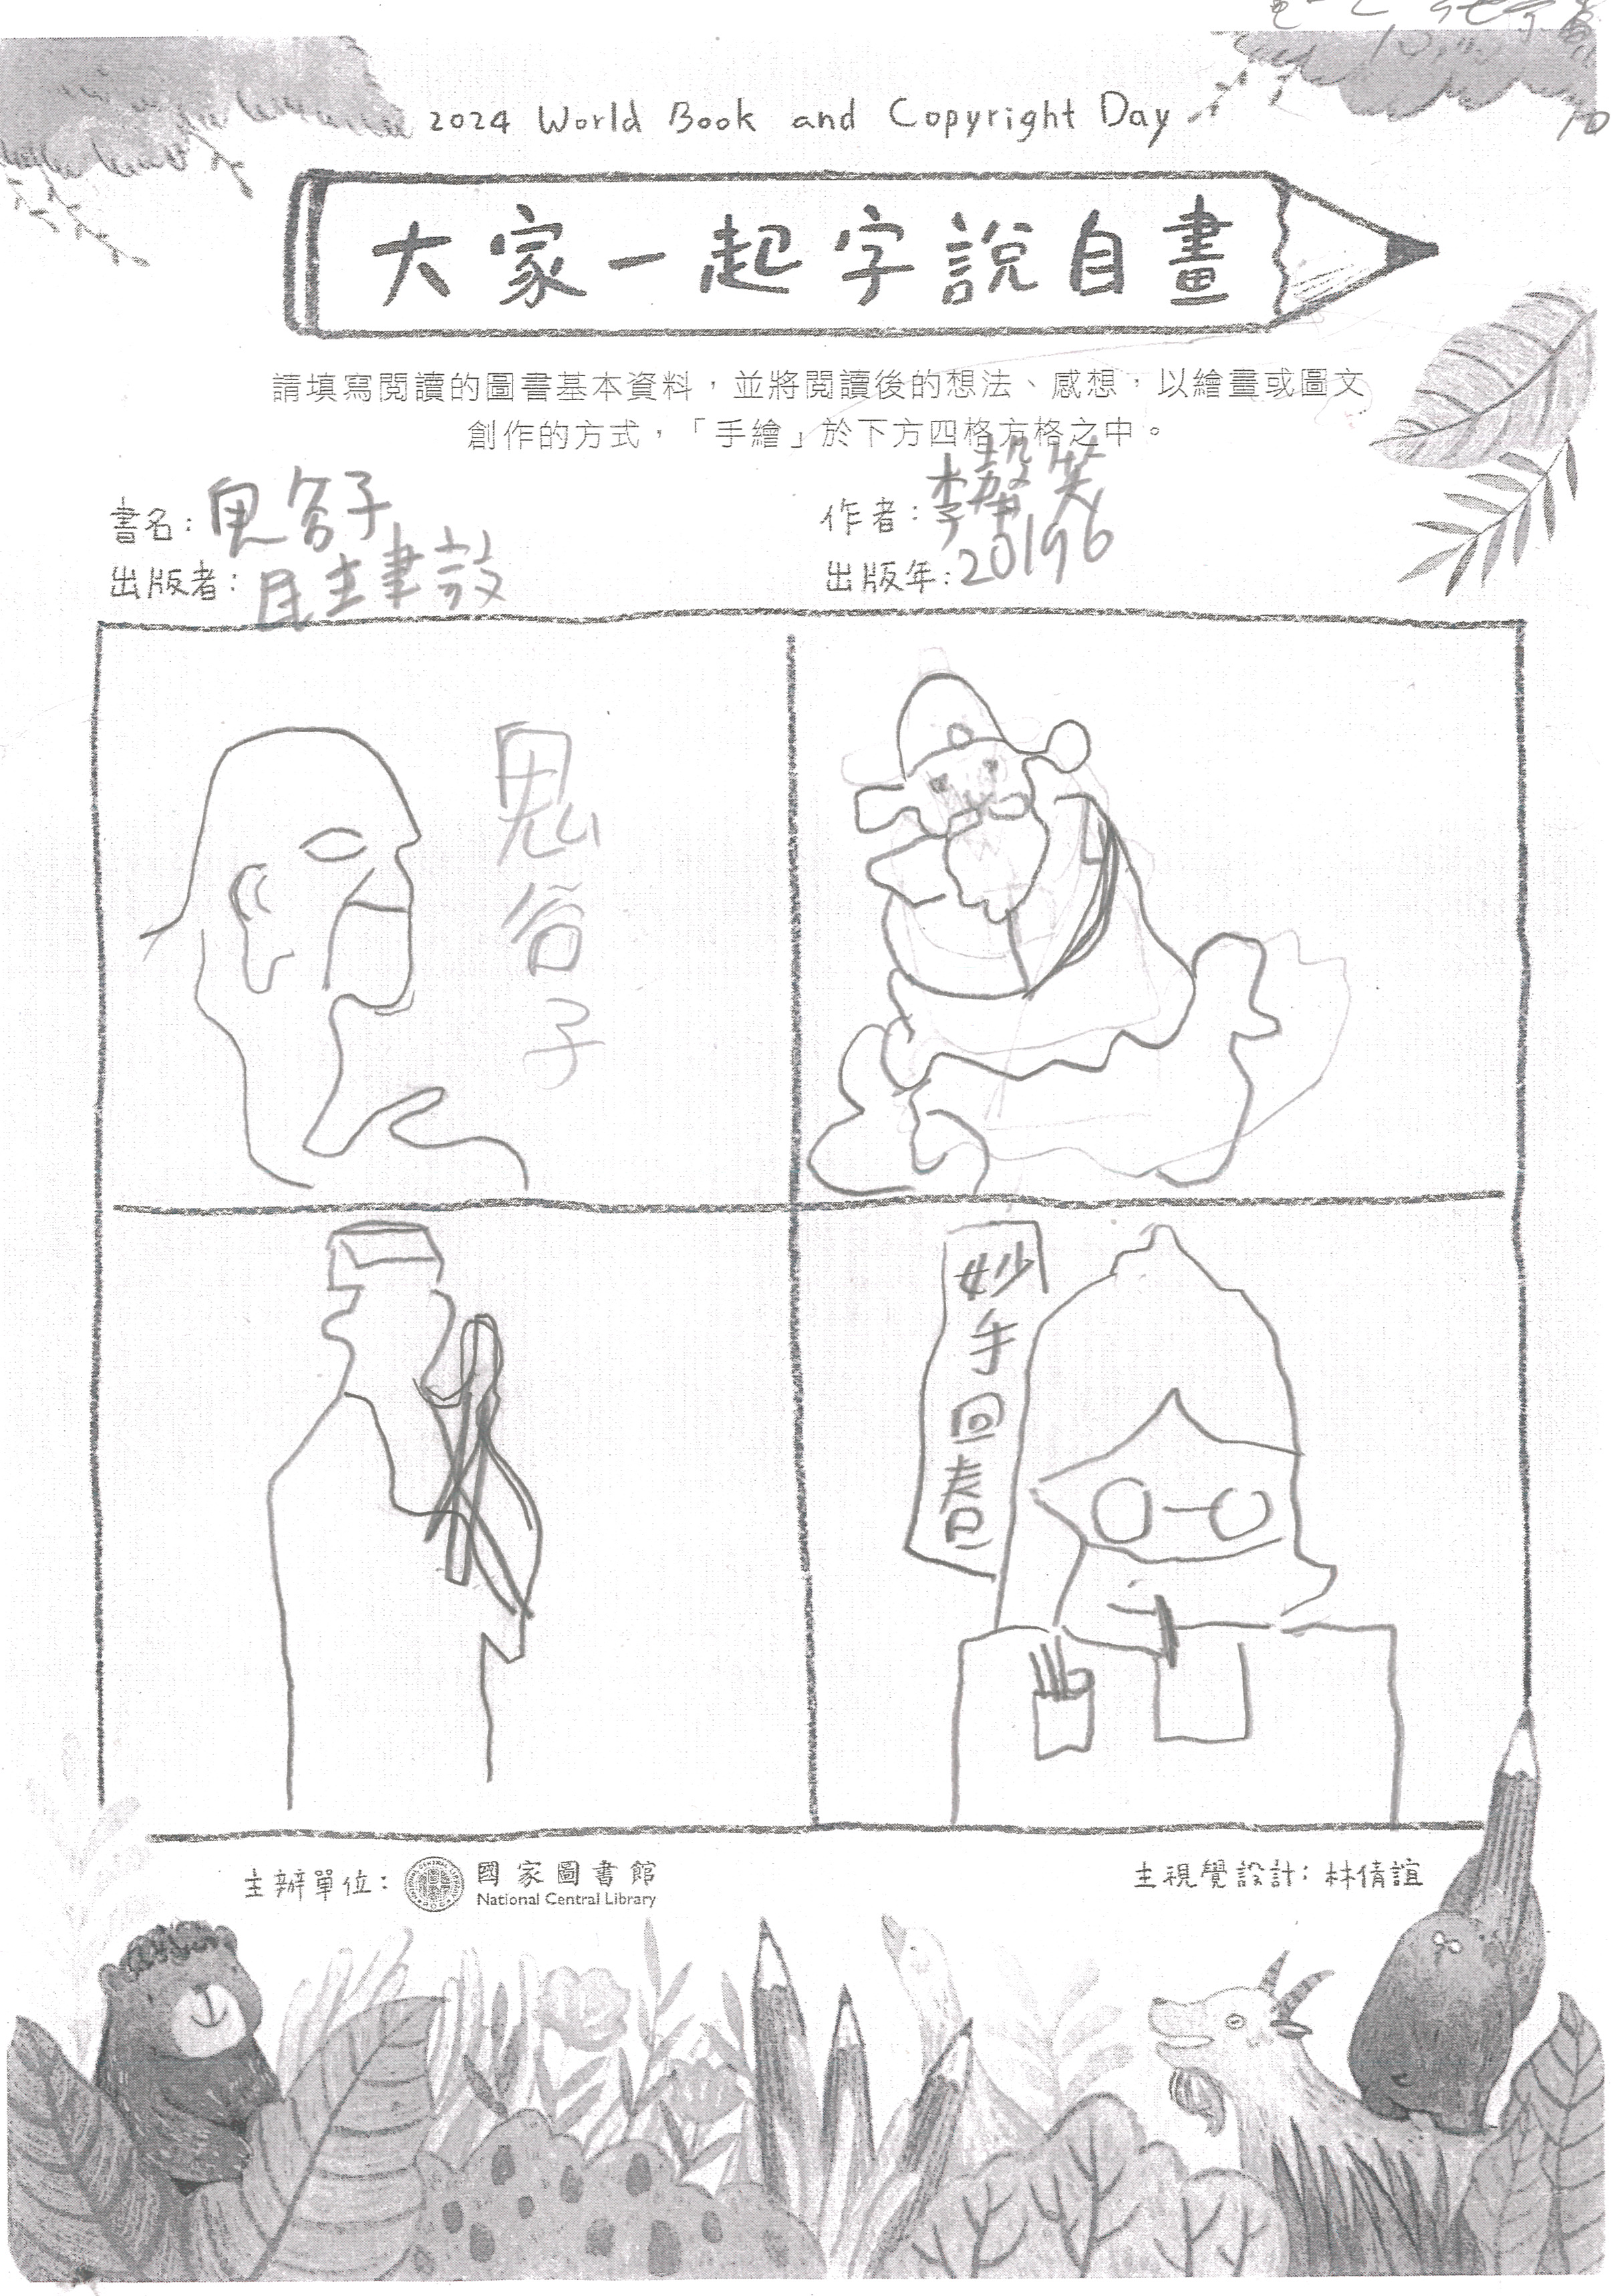 2024 World Book and Copyright Day
大家一起字說自畫
請填寫閱讀的圖書基本資料，並將閱讀後的想法、感想，以繪畫或圖文
創作的方式，「手繪」於下方四格方格之中。
書名：鬼谷子
作者：李馨笑
出版者：民主建設
出版年：20196
鬼谷子
妙手回春
主辦單位：國家圖書館
National Central Library
主視覺設計：林倩誼